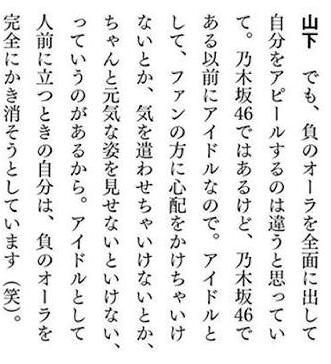 山下　でも、負のオーラを全面に出して
自分をアピールするのは違うと思ってい
て。乃木坂46ではあるけど、乃木坂46で
ある以前にアイドルなので。アイドルと
して、ファンの方に心配をかけちゃいけ
ないとか、気を遣わせちゃいけないとか、
ちゃんと元気な姿を見せないといけない、
っていうのがあるから。アイドルとして
人前に立つときの自分は、負のオーラを
完全にかき消そうとしています（笑）。